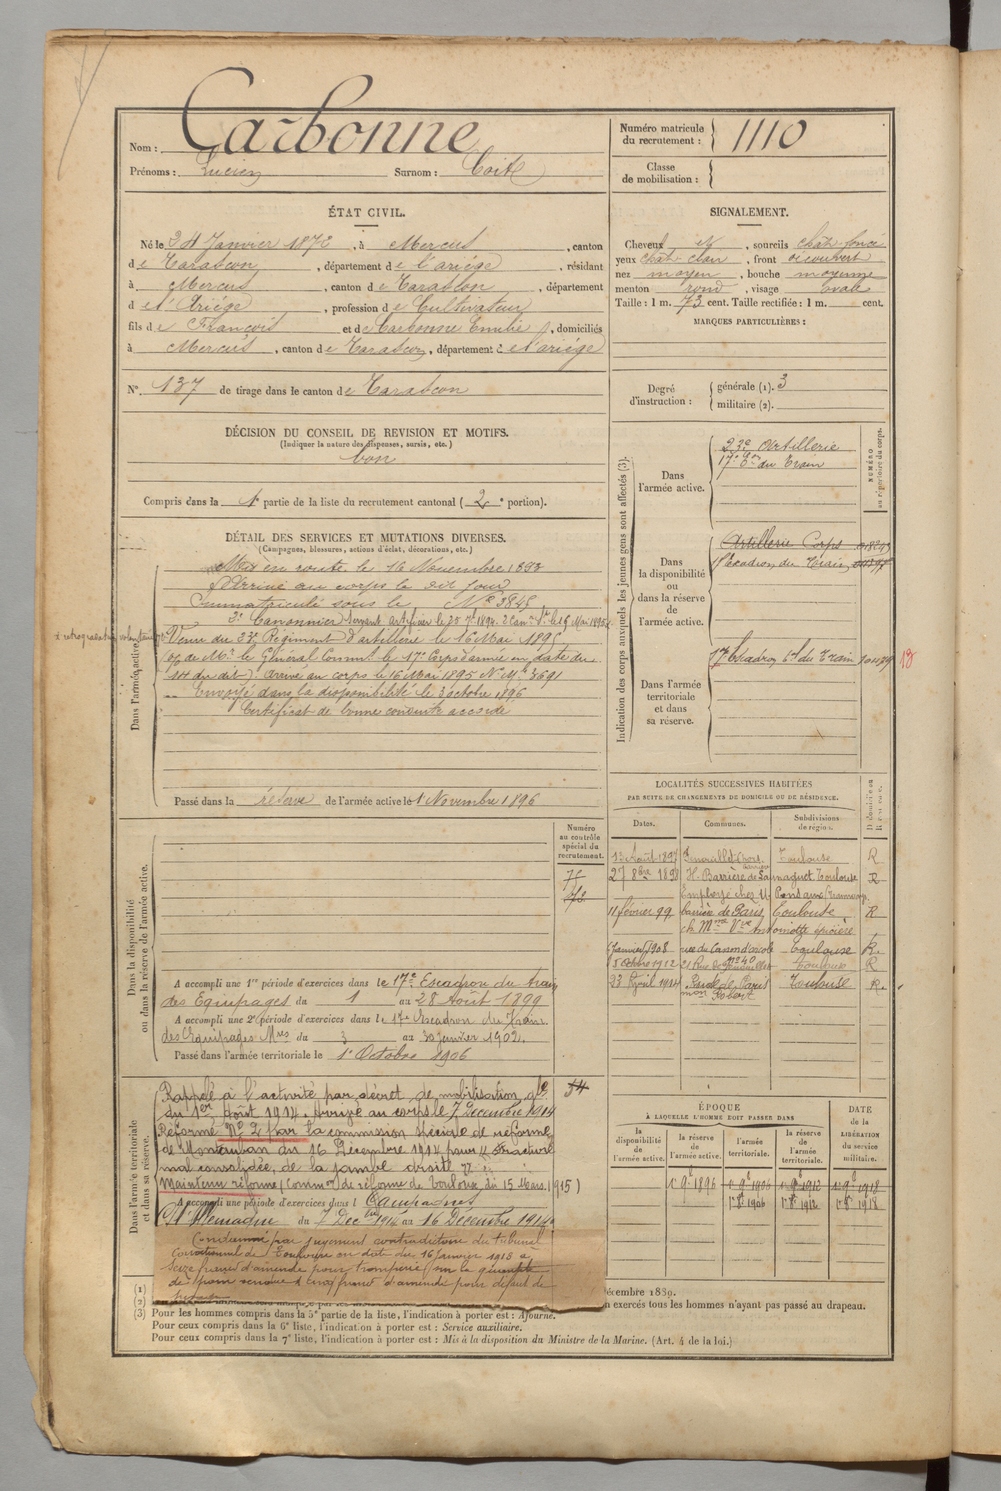 Nom : Carbonne
Prénoms : Lucien Surnom :
Numéro matricule du recrutement : 1110
Classe de mobilisation :
ÉTAT CIVIL.
Né le 24 Janvier 1872, à Mercus, canton
de Tarascon, département de l'ariége, résidant
à Mercus, canton de Tarascon, département
de l'Ariége, profession de Cultivateur
fils de François et de Carbonne Emilie, domiciliés
à Mercus, canton de Tarascon, département de l'ariége
N° 137 de tirage dans le canton de Tarascon
DÉCISION DU CONSEIL DE REVISION ET MOTIFS.
(Indiquer la nature des dispenses, sursis, etc.)
bon
Compris dans la 1e partie de la liste du recrutement cantonal (2e portion).
SIGNALEMENT.
Cheveux et, sourcils chât. foncé
yeux chât. clair, front découvert
nez moyen, bouche moyenne
menton rond, visage ovale
Taille : 1 m. 73 cent. Taille rectifiée : 1 m. cent.
MARQUES PARTICULIÈRES :
Degré d'instruction : générale (1). 3
militaire (2).
DÉTAIL DES SERVICES ET MUTATIONS DIVERSES.
(Campagnes, blessures, actions d'éclat, décorations, etc.)
Dans l'armée active.
Mis en route le 16 Novembre 1893
Arrivé au corps le dit jour
Immatriculé sous le N° 3845
2e Canonnier servant
Venu du 23e Régiment d'artillerie le 16 Mai 1895
de Mr le Général Commt le 17e Corps d'armée en date du
14 du dit). Arrivé au corps le 16 Mai 1895 N° Mle 3691
Envoyé dans la disponibilité le 3 octobre 1896
Certificat de bonne conduite accordé
Passé dans la réserve de l'armée active le 1 Novembre 1896
Indication des corps auxquels les jeunes gens sont affectés (3).
NUMÉRO au répertoire du corps.
Dans l'armée active.
23e Artillerie
17e Eon du Train
Dans la disponibilité ou dans la réserve de l'armée active.
Artillerie Corps
Escadron du Train
Dans l'armée territoriale et dans sa réserve.
17e Escadron tal du Train
18
LOCALITÉS SUCCESSIVES HABITÉES
PAR SUITE DE CHANGEMENTS DE DOMICILE OU DE RÉSIDENCE.
Dates. Communes. Subdivisions de région.
Août 1897 Toulouse R
27 8bre 1898 Barrière de Toulouse R
Employé chez
11 février 99 barrière de Paris Toulouse R
ch Mme Vve Antoinette épicière
Janvier 1908 rue du Toulouse R.
5 Octobre 1912 21 Rue de Toulouse R
23 Avril 1914 de Paris Toulouse R.
mon Robert
Dans la disponibilité ou dans la réserve de l'armée active.
Numéro au contrôle spécial du recrutement.
A accompli une 1re période d'exercices dans le 17e Escadron du train
des Equipages du 1 au 28 Août 1899
A accompli une 2e période d'exercices dans le 17e Escadron du Train
des Equipages Mres du 3 au 30 janvier 1902.
Passé dans l'armée territoriale le 1er Octobre 1906
Dans l'armée territoriale et dans sa réserve.
Rappelé à l'activité par décret de mobilisation gle
du 1er Août 1914. Arrivé au corps le 7 Décembre 1914
Réformé N° 2 par la commission spéciale de réforme
de Montauban du 16 Décembre 1914 pour "fracture
mal consolidée, de la jambe droite"
Maintenu réformé (Common de réforme de Toulouse du 15 Mars 1915)
A accompli une période d'exercices dans l
Campagnes
C/ l'Allemagne du 7 Decbre 1914 au 16 Décembre 1914
Condamné par jugement contradictoire du tribunal
Correctionnel de Toulouse en date du 16 janvier 1918 à
seize francs d'amende pour tromperie sur la quantité
de pain vendue & cinq francs d'amende pour défaut de
ÉPOQUE
À LAQUELLE L'HOMME DOIT PASSER DANS
la disponibilité de l'armée active. la réserve de l'armée active. l'armée territoriale. la réserve de l'armée territoriale.
DATE de la LIBÉRATION du service militaire.
1er 9bre 1896 1er 9bre 1906 1er 9bre 1912 1er 9bre 1918
1er 8bre 1906 1er 8bre 1912 1er 8bre 1918
(1)
(2)
décembre 1889.
n exercés tous les hommes n'ayant pas passé au drapeau.
(3) Pour les hommes compris dans la 5e partie de la liste, l'indication à porter est : Ajourné.
Pour ceux compris dans la 6e liste, l'indication à porter est : Service auxiliaire.
Pour ceux compris dans la 7e liste, l'indication à porter est : Mis à la disposition du Ministre de la Marine. (Art. 4 de la loi.)